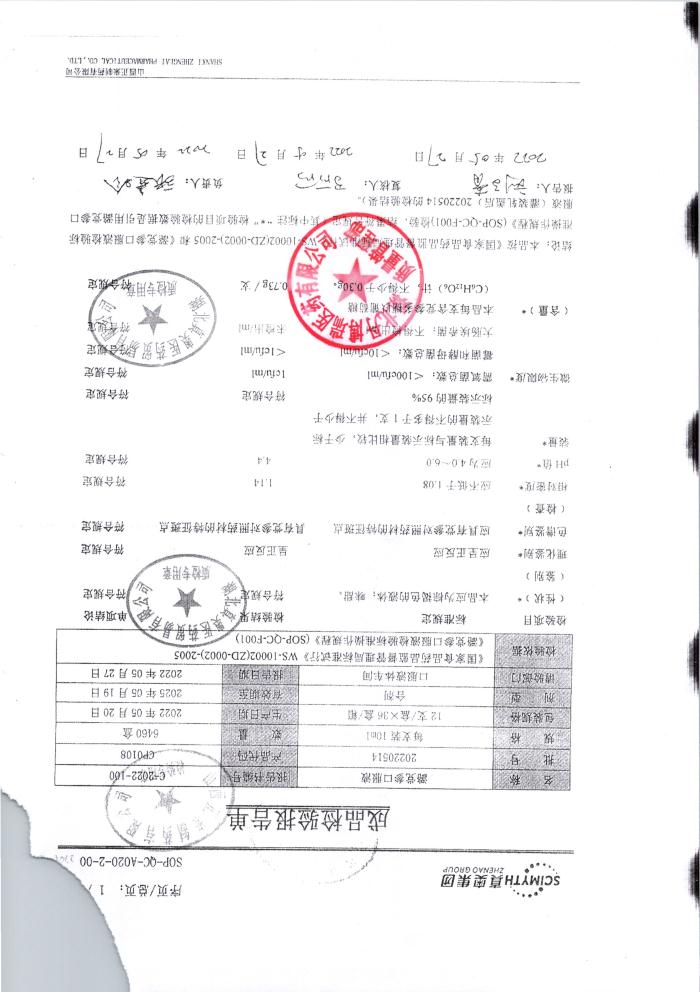 SCIMYTH 真奥集团
ZHENAO GROUP
序页/总页: 1 /
SOP-QC-A020-2-00
成品检验报告单
名 称 潞党参口服液 报告书编号 C-2022-100
批 号 20220514 产品代码 CP0108
规 格 每支装 10ml 数 量 6460 盒
包装规格 12 支/盒×36 盒/箱 生产日期 2022 年 05 月 20 日
剂 型 合剂 有效期至 2025 年 05 月 19 日
请验部门 口服液体车间 报告日期 2022 年 05 月 27 日
检验依据 《国家食品药品监督管理局标准试行》WS-10002(ZD-0002)-2005
《潞党参口服液检验标准操作规程》(SOP-QC-F001)
检验项目 标准规定 检验结果 单项结论
(性状)* 本品应为棕褐色的液体;味甜。 符合规定 符合规定
(鉴别)
理化鉴别* 应呈正反应 呈正反应 符合规定
色谱鉴别* 应具有党参对照药材的特征斑点 具有党参对照药材的特征斑点 符合规定
(检查)
相对密度* 应不低于 1.08 1.14 符合规定
pH 值* 应为 4.0~6.0 4.4 符合规定
装量* 每支装量与标示装量相比较,少于标
示装量的不得多于 1 支,并不得少于
标示装量的 95% 符合规定 符合规定
微生物限度* 需氧菌总数:<100cfu/ml 1cfu/ml 符合规定
霉菌和酵母菌总数:<10cfu/ml <1cfu/ml 符合规定
大肠埃希菌:不得检出/ml 未检出/ml 符合规定
(含量)* 本品每支含党参多糖以葡萄糖
(C₆H₁₂O₆)计,不得少于 0.30g。 0.73g/支 符合规定
结论:本品按《国家食品药品监督管理局标准试行》WS-10002(ZD-0002)-2005 和《潞党参口服液检验标
准操作规程》(SOP-QC-F001)检验,结果符合规定(其中标注"*"检验项目的检验数据是引用潞党参口
服液(灌装轧盖后)20220514 的检验结果)。
报告人: 复核人: 负责人:
2022 年 05 月 27 日 2022 年 05 月 27 日 2022 年 05 月 27 日
山西正来制药有限公司
SHANXI ZHENGLAI PHARMACEUTICAL CO.,LTD.
博瑞医药有限公司
质量管理部
湖北真奥医药贸易有限公司
质检专用章
湖北真奥医药贸易有限公司
质检专用章